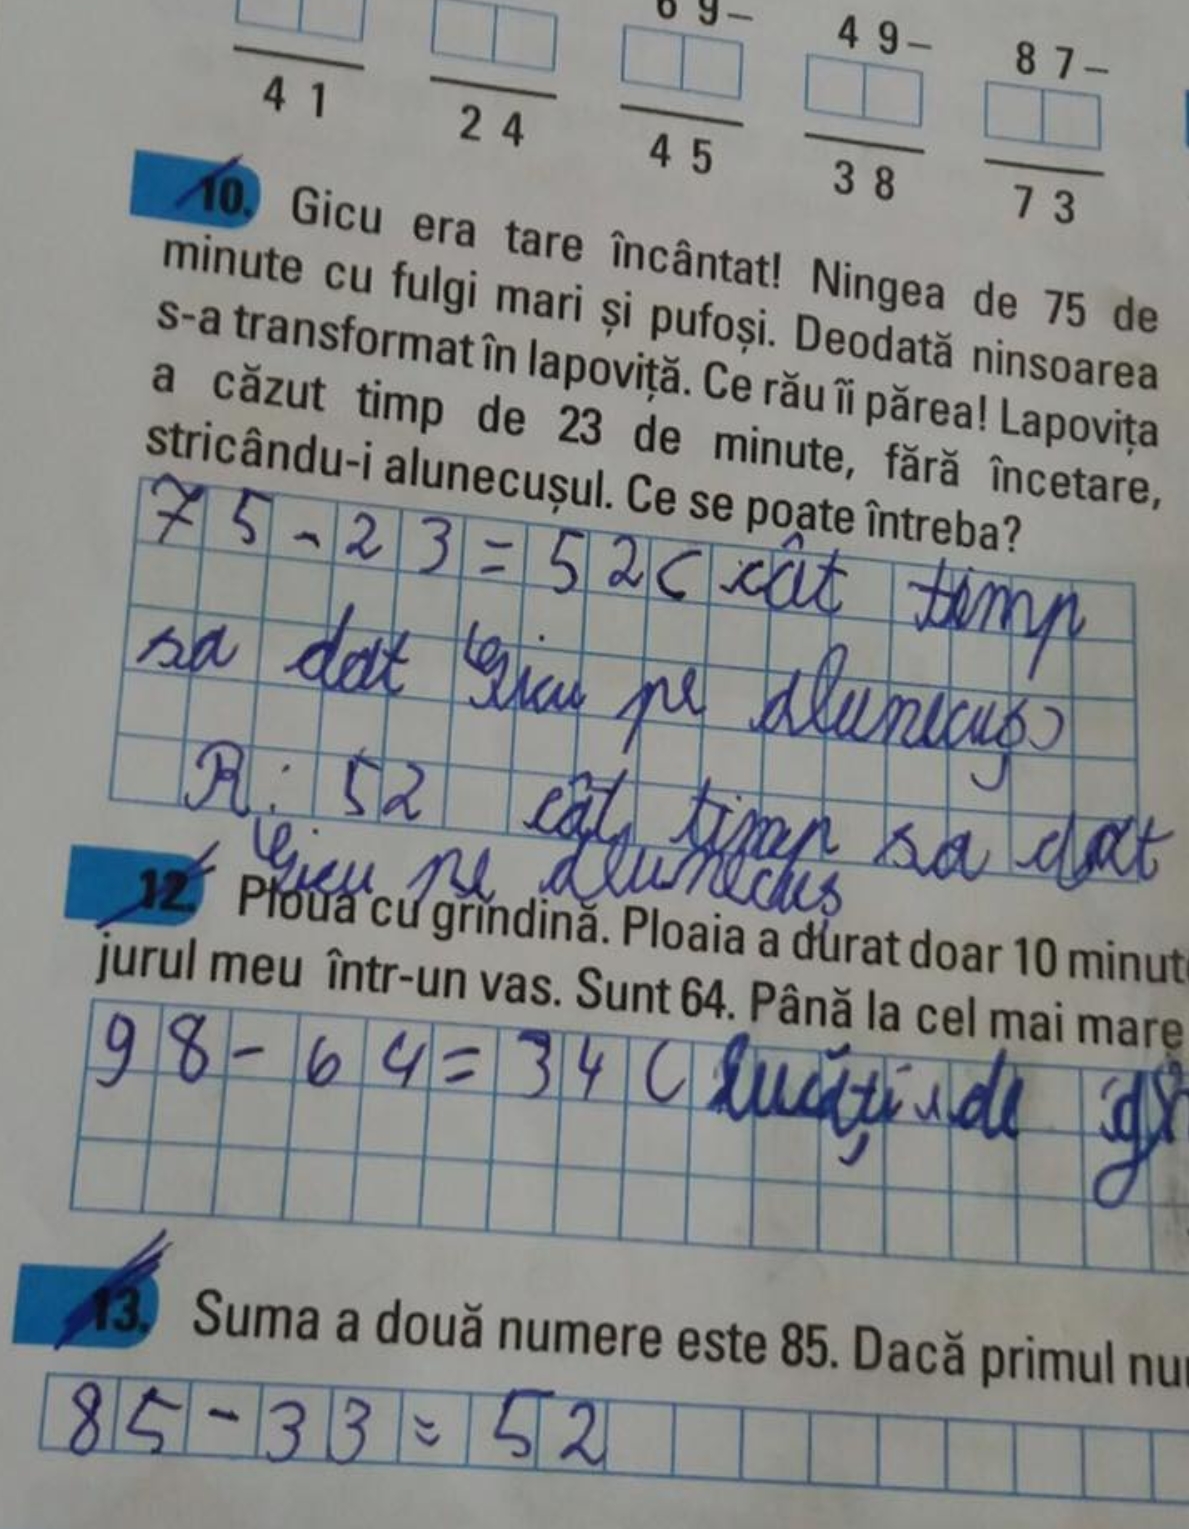 6 9 –
4 9 –
8 7 –
4 1
2 4
4 5
3 8
7 3
10. Gicu era tare încântat! Ningea de 75 de
minute cu fulgi mari și pufoși. Deodată ninsoarea
s-a transformat în lapoviță. Ce rău îi părea! Lapovița
a căzut timp de 23 de minute, fără încetare,
stricându-i alunecușul. Ce se poate întreba?
75-23=52( cât timp
sa dat Gicu pe alunecuș)
R: 52 cât timp sa dat
Gicu pe alunecuș
12. Plouă cu grindină. Ploaia a durat doar 10 minut
jurul meu într-un vas. Sunt 64. Până la cel mai mare
98-64=34( bucăți de
13. Suma a două numere este 85. Dacă primul
85-33=52